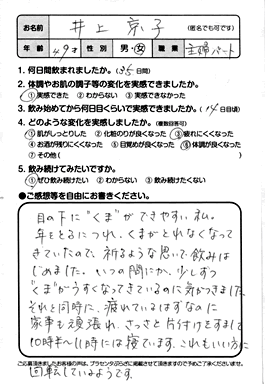 お名前 井上京子 (匿名でも可です)
年齢 49才 性別 男・女 職業 主婦パート
1. 何日間飲まれましたか。(35日間)
2. 体調やお肌の調子等の変化を実感できましたか。
①実感できた ②わからない ③実感できなかった
3. 飲み始めてから何日目くらいで実感できましたか。(14日目頃)
4. どのような変化を実感しましたか。(複数回答可)
①肌がしっとりした ②化粧のりが良くなった ③疲れにくくなった
④お酒が残りにくくなった ⑤目覚めが良くなった ⑥体調が良くなった
⑦その他( )
5. 飲み続けてみたいですか。
①ぜひ飲み続けたい ②わからない ③飲み続けたくない
●ご感想等を自由にお書きください。
目の下に"くま"ができやすい私。
年をとるにつれ、くまがとれなくなって
きていたので、祈るような思いで飲みは
じめました。いつの間にか、少しずつ
"くま"がうすくなってきているのに気がつきました
それと同時に、疲れているはずなのに
家事も頑張れ、さっさと片付けをすまして
10時半〜11時には寝ています。これもいい方に
ご応募頂きましたお客様の声は、プラセンタぷらざに掲載させて頂きますので予めご了承くださいませ。
回転しているようです。